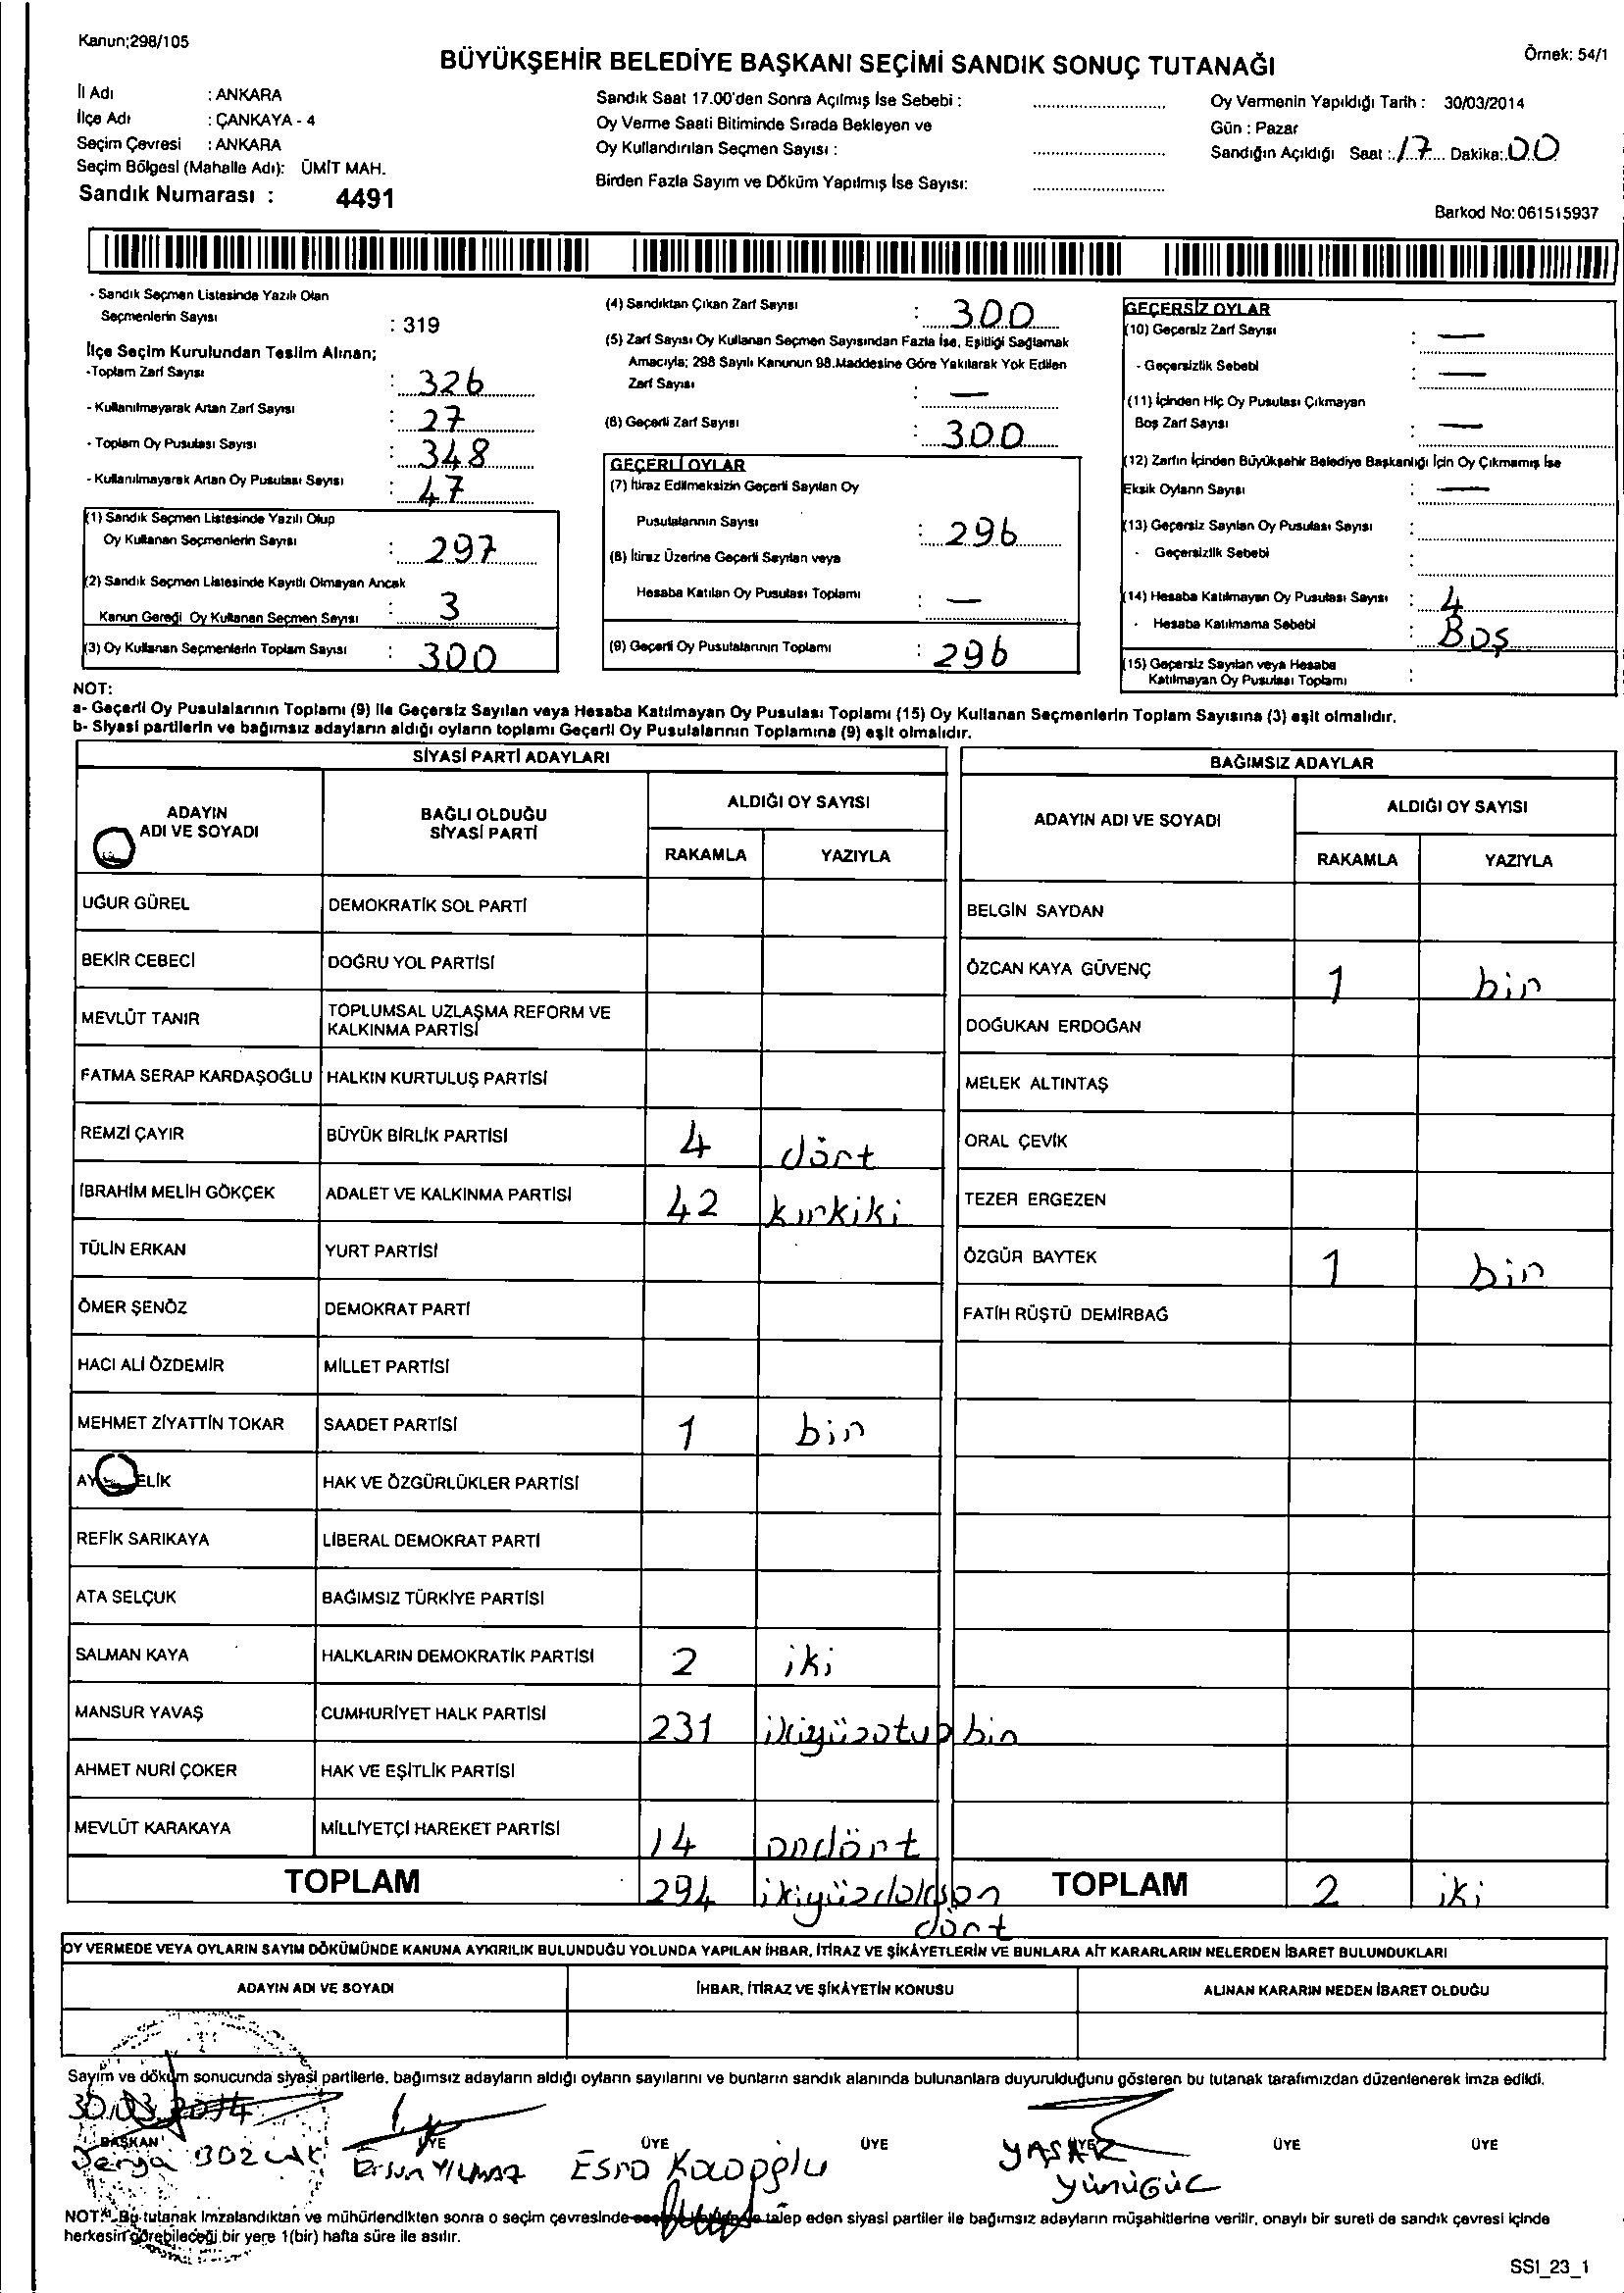 Kanun;298/105
BÜYÜKŞEHİR BELEDİYE BAŞKANI SEÇİMİ SANDIK SONUÇ TUTANAĞI
Örnek: 54/1
İl Adı : ANKARA
İlçe Adı : ÇANKAYA - 4
Seçim Çevresi : ANKARA
Seçim Bölgesi (Mahalle Adı): ÜMİT MAH.
Sandık Numarası : 4491
Sandık Saat 17.00'den Sonra Açılmış İse Sebebi :
Oy Verme Saati Bitiminde Sırada Bekleyen ve
Oy Kullandırılan Seçmen Sayısı :
Birden Fazla Sayım ve Döküm Yapılmış İse Sayısı:
Oy Vermenin Yapıldığı Tarih : 30/03/2014
Gün : Pazar
Sandığın Açıldığı Saat : 17 Dakika: 00
Barkod No:061515937
- Sandık Seçmen Listesinde Yazılı Olan
Seçmenlerin Sayısı : 319
İlçe Seçim Kurulundan Teslim Alınan;
-Toplam Zarf Sayısı : 326
- Kullanılmayarak Artan Zarf Sayısı : 27
- Toplam Oy Pusulası Sayısı : 348
- Kullanılmayarak Artan Oy Pusulası Sayısı : 47
(1) Sandık Seçmen Listesinde Yazılı Olup
Oy Kullanan Seçmenlerin Sayısı : 297
(2) Sandık Seçmen Listesinde Kayıtlı Olmayan Ancak
Kanun Gereği Oy Kullanan Seçmen Sayısı : 3
(3) Oy Kullanan Seçmenlerin Toplam Sayısı : 300
(4) Sandıktan Çıkan Zarf Sayısı : 300
(5) Zarf Sayısı Oy Kullanan Seçmen Sayısından Fazla İse, Eşitliği Sağlamak
Amacıyla; 298 Sayılı Kanunun 98.Maddesine Göre Yakılarak Yok Edilen
Zarf Sayısı : —
(6) Geçerli Zarf Sayısı : 300
GEÇERLİ OYLAR
(7) İtiraz Edilmeksizin Geçerli Sayılan Oy
Pusulalarının Sayısı : 296
(8) İtiraz Üzerine Geçerli Sayılan veya
Hesaba Katılan Oy Pusulası Toplamı : —
(9) Geçerli Oy Pusulalarının Toplamı : 296
GEÇERSİZ OYLAR
(10) Geçersiz Zarf Sayısı : —
- Geçersizlik Sebebi : —
(11) İçinden Hiç Oy Pusulası Çıkmayan
Boş Zarf Sayısı : —
(12) Zarfın İçinden Büyükşehir Belediye Başkanlığı İçin Oy Çıkmamış İse
Eksik Oyların Sayısı : —
(13) Geçersiz Sayılan Oy Pusulası Sayısı :
- Geçersizlik Sebebi :
(14) Hesaba Katılmayan Oy Pusulası Sayısı : 4
- Hesaba Katılmama Sebebi : Boş
(15) Geçersiz Sayılan veya Hesaba
Katılmayan Oy Pusulası Toplamı :
NOT:
a- Geçerli Oy Pusulalarının Toplamı (9) İle Geçersiz Sayılan veya Hesaba Katılmayan Oy Pusulası Toplamı (15) Oy Kullanan Seçmenlerin Toplam Sayısına (3) eşit olmalıdır.
b- Siyasi partilerin ve bağımsız adayların aldığı oyların toplamı Geçerli Oy Pusulalarının Toplamına (9) eşit olmalıdır.
SİYASİ PARTİ ADAYLARI
ADAYIN
ADI VE SOYADI
BAĞLI OLDUĞU
SİYASİ PARTİ
ALDIĞI OY SAYISI
RAKAMLA YAZIYLA
UĞUR GÜREL DEMOKRATİK SOL PARTİ
BEKİR CEBECİ DOĞRU YOL PARTİSİ
MEVLÜT TANIR TOPLUMSAL UZLAŞMA REFORM VE
KALKINMA PARTİSİ
FATMA SERAP KARDAŞOĞLU HALKIN KURTULUŞ PARTİSİ
REMZİ ÇAYIR BÜYÜK BİRLİK PARTİSİ 4 dört
İBRAHİM MELİH GÖKÇEK ADALET VE KALKINMA PARTİSİ 42 kırkiki
TÜLİN ERKAN YURT PARTİSİ
ÖMER ŞENÖZ DEMOKRAT PARTİ
HACI ALİ ÖZDEMİR MİLLET PARTİSİ
MEHMET ZİYATTİN TOKAR SAADET PARTİSİ 1 bir
HAK VE ÖZGÜRLÜKLER PARTİSİ
REFİK SARIKAYA LİBERAL DEMOKRAT PARTİ
ATA SELÇUK BAĞIMSIZ TÜRKİYE PARTİSİ
SALMAN KAYA HALKLARIN DEMOKRATİK PARTİSİ 2 iki
MANSUR YAVAŞ CUMHURİYET HALK PARTİSİ 231 ikiyüzotuz bir
AHMET NURİ ÇOKER HAK VE EŞİTLİK PARTİSİ
MEVLÜT KARAKAYA MİLLİYETÇİ HAREKET PARTİSİ 14 ondört
TOPLAM 294 ikiyüzdoksan
dört
BAĞIMSIZ ADAYLAR
ADAYIN ADI VE SOYADI
ALDIĞI OY SAYISI
RAKAMLA YAZIYLA
BELGİN SAYDAN
ÖZCAN KAYA GÜVENÇ 1 bir
DOĞUKAN ERDOĞAN
MELEK ALTINTAŞ
ORAL ÇEVİK
TEZER ERGEZEN
ÖZGÜR BAYTEK 1 bir
FATİH RÜŞTÜ DEMİRBAĞ
TOPLAM 2 iki
OY VERMEDE VEYA OYLARIN SAYIM DÖKÜMÜNDE KANUNA AYKIRILIK BULUNDUĞU YOLUNDA YAPILAN İHBAR, İTİRAZ VE ŞİKÂYETLERİN VE BUNLARA AİT KARARLARIN NELERDEN İBARET BULUNDUKLARI
ADAYIN ADI VE SOYADI İHBAR, İTİRAZ VE ŞİKÂYETİN KONUSU ALINAN KARARIN NEDEN İBARET OLDUĞU
Sayım ve döküm sonucunda siyasi partilerle, bağımsız adayların aldığı oyların sayılarını ve bunların sandık alanında bulunanlara duyurulduğunu gösteren bu tutanak tarafımızdan düzenlenerek imza edildi.
30.03.2014
BAŞKAN ÜYE ÜYE ÜYE ÜYE ÜYE ÜYE
Derya Ersun YILMAZ Esra YAŞAR
NOT: Bu tutanak imzalandıktan ve mühürlendikten sonra o seçim çevresinde talep eden siyasi partiler ile bağımsız adayların müşahitlerine verilir, onaylı bir sureti de sandık çevresi içinde
herkesin görebileceği bir yere 1(bir) hafta süre ile asılır.
SSI_23_1